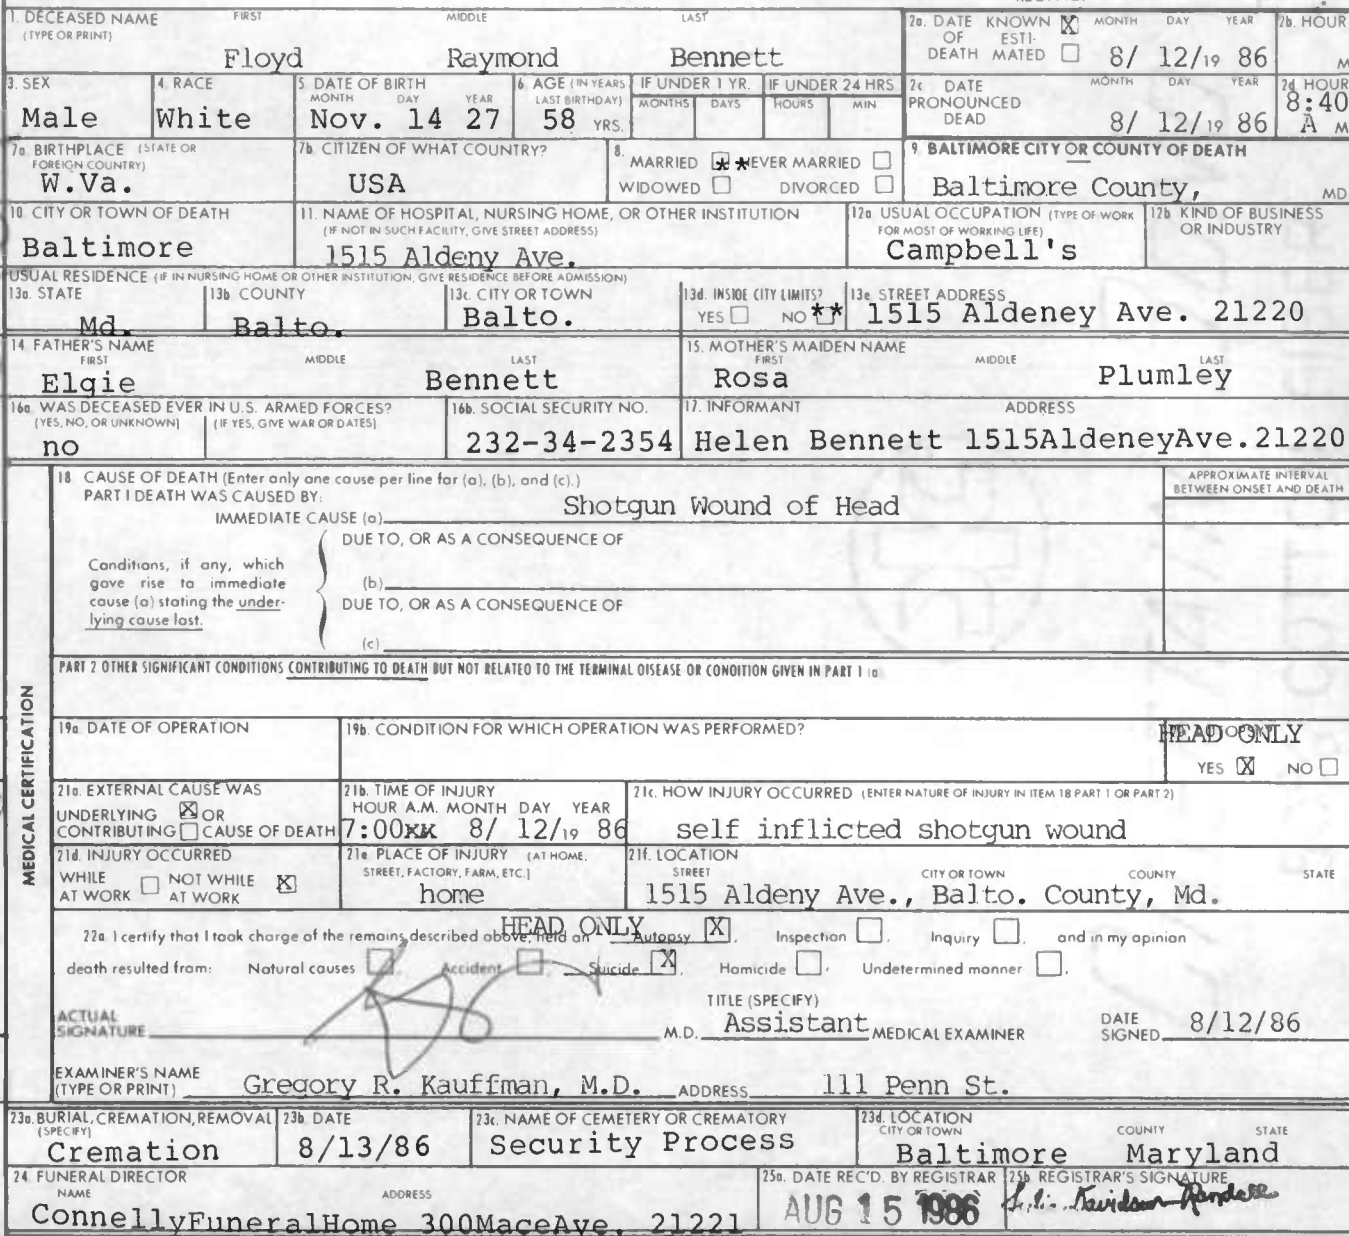 1. DECEASED NAME FIRST MIDDLE LAST
(TYPE OR PRINT)
Floyd Raymond Bennett
2a. DATE KNOWN X MONTH DAY YEAR 2b. HOUR
OF ESTI-
DEATH MATED 8/ 12/19 86 M
3. SEX 4. RACE 5. DATE OF BIRTH 6. AGE (IN YEARS IF UNDER 1 YR. IF UNDER 24 HRS
MONTH DAY YEAR LAST BIRTHDAY) MONTHS DAYS HOURS MIN
Male White Nov. 14 27 58 YRS.
2c. DATE MONTH DAY YEAR 2d. HOUR
PRONOUNCED 8:40
DEAD 8/ 12/19 86 A M
7a. BIRTHPLACE (STATE OR
FOREIGN COUNTRY)
W.Va.
7b. CITIZEN OF WHAT COUNTRY?
USA
8. MARRIED ** EVER MARRIED
WIDOWED DIVORCED
9. BALTIMORE CITY OR COUNTY OF DEATH
Baltimore County, MD
10. CITY OR TOWN OF DEATH
Baltimore
11. NAME OF HOSPITAL, NURSING HOME, OR OTHER INSTITUTION
(IF NOT IN SUCH FACILITY, GIVE STREET ADDRESS)
1515 Aldeny Ave.
12a. USUAL OCCUPATION (TYPE OF WORK
FOR MOST OF WORKING LIFE)
Campbell's
12b. KIND OF BUSINESS
OR INDUSTRY
USUAL RESIDENCE (IF IN NURSING HOME OR OTHER INSTITUTION, GIVE RESIDENCE BEFORE ADMISSION)
13a. STATE 13b. COUNTY 13c. CITY OR TOWN 13d. INSIDE CITY LIMITS? 13e. STREET ADDRESS
Md. Balto. Balto. YES NO ** 1515 Aldeney Ave. 21220
14. FATHER'S NAME
FIRST MIDDLE LAST
Elgie Bennett
15. MOTHER'S MAIDEN NAME
FIRST MIDDLE LAST
Rosa Plumley
16a. WAS DECEASED EVER IN U.S. ARMED FORCES?
(YES, NO, OR UNKNOWN) (IF YES, GIVE WAR OR DATES)
no
16b. SOCIAL SECURITY NO.
232-34-2354
17. INFORMANT ADDRESS
Helen Bennett 1515AldeneyAve.21220
MEDICAL CERTIFICATION
18 CAUSE OF DEATH (Enter only one cause per line for (a), (b), and (c).)
APPROXIMATE INTERVAL
BETWEEN ONSET AND DEATH
PART I DEATH WAS CAUSED BY:
IMMEDIATE CAUSE (a) Shotgun Wound of Head
DUE TO, OR AS A CONSEQUENCE OF
Conditions, if any, which
gave rise to immediate
cause (a) stating the under-
lying cause last.
(b)
DUE TO, OR AS A CONSEQUENCE OF
(c)
PART 2 OTHER SIGNIFICANT CONDITIONS CONTRIBUTING TO DEATH BUT NOT RELATED TO THE TERMINAL DISEASE OR CONDITION GIVEN IN PART 1 (a)
19a. DATE OF OPERATION
19b. CONDITION FOR WHICH OPERATION WAS PERFORMED?
HEAD ONLY
YES X NO
21a. EXTERNAL CAUSE WAS
UNDERLYING X OR
CONTRIBUTING CAUSE OF DEATH
21b. TIME OF INJURY
HOUR A.M. MONTH DAY YEAR
7:00xx 8/ 12/19 86
21c. HOW INJURY OCCURRED (ENTER NATURE OF INJURY IN ITEM 18 PART 1 OR PART 2)
self inflicted shotgun wound
21d. INJURY OCCURRED
WHILE NOT WHILE X
AT WORK AT WORK
21e. PLACE OF INJURY (AT HOME,
STREET, FACTORY, FARM, ETC.)
home
21f. LOCATION
STREET CITY OR TOWN COUNTY STATE
1515 Aldeny Ave., Balto. County, Md.
HEAD ONLY
22a. I certify that I took charge of the remains described above, held an Autopsy X, Inspection , Inquiry , and in my opinion
death resulted from: Natural causes , Accident , Suicide X, Homicide , Undetermined manner .
TITLE (SPECIFY)
ACTUAL
SIGNATURE M.D. Assistant MEDICAL EXAMINER
DATE
SIGNED 8/12/86
EXAMINER'S NAME
(TYPE OR PRINT) Gregory R. Kauffman, M.D. ADDRESS 111 Penn St.
23a. BURIAL, CREMATION, REMOVAL
(SPECIFY)
Cremation
23b. DATE
8/13/86
23c. NAME OF CEMETERY OR CREMATORY
Security Process
23d. LOCATION
CITY OR TOWN COUNTY STATE
Baltimore Maryland
24. FUNERAL DIRECTOR
NAME ADDRESS
ConnellyFuneralHome 300MaceAve. 21221
25a. DATE REC'D. BY REGISTRAR
AUG 15 1986
25b. REGISTRAR'S SIGNATURE
Davidson Randall